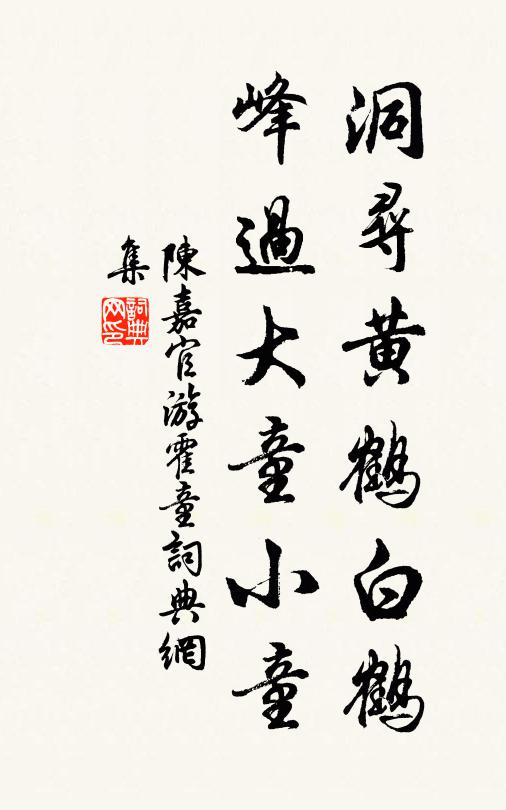 洞尋黄鶴白鶴
峰過大童小童
陳嘉官游霍童詞典網
集
詞典
网印